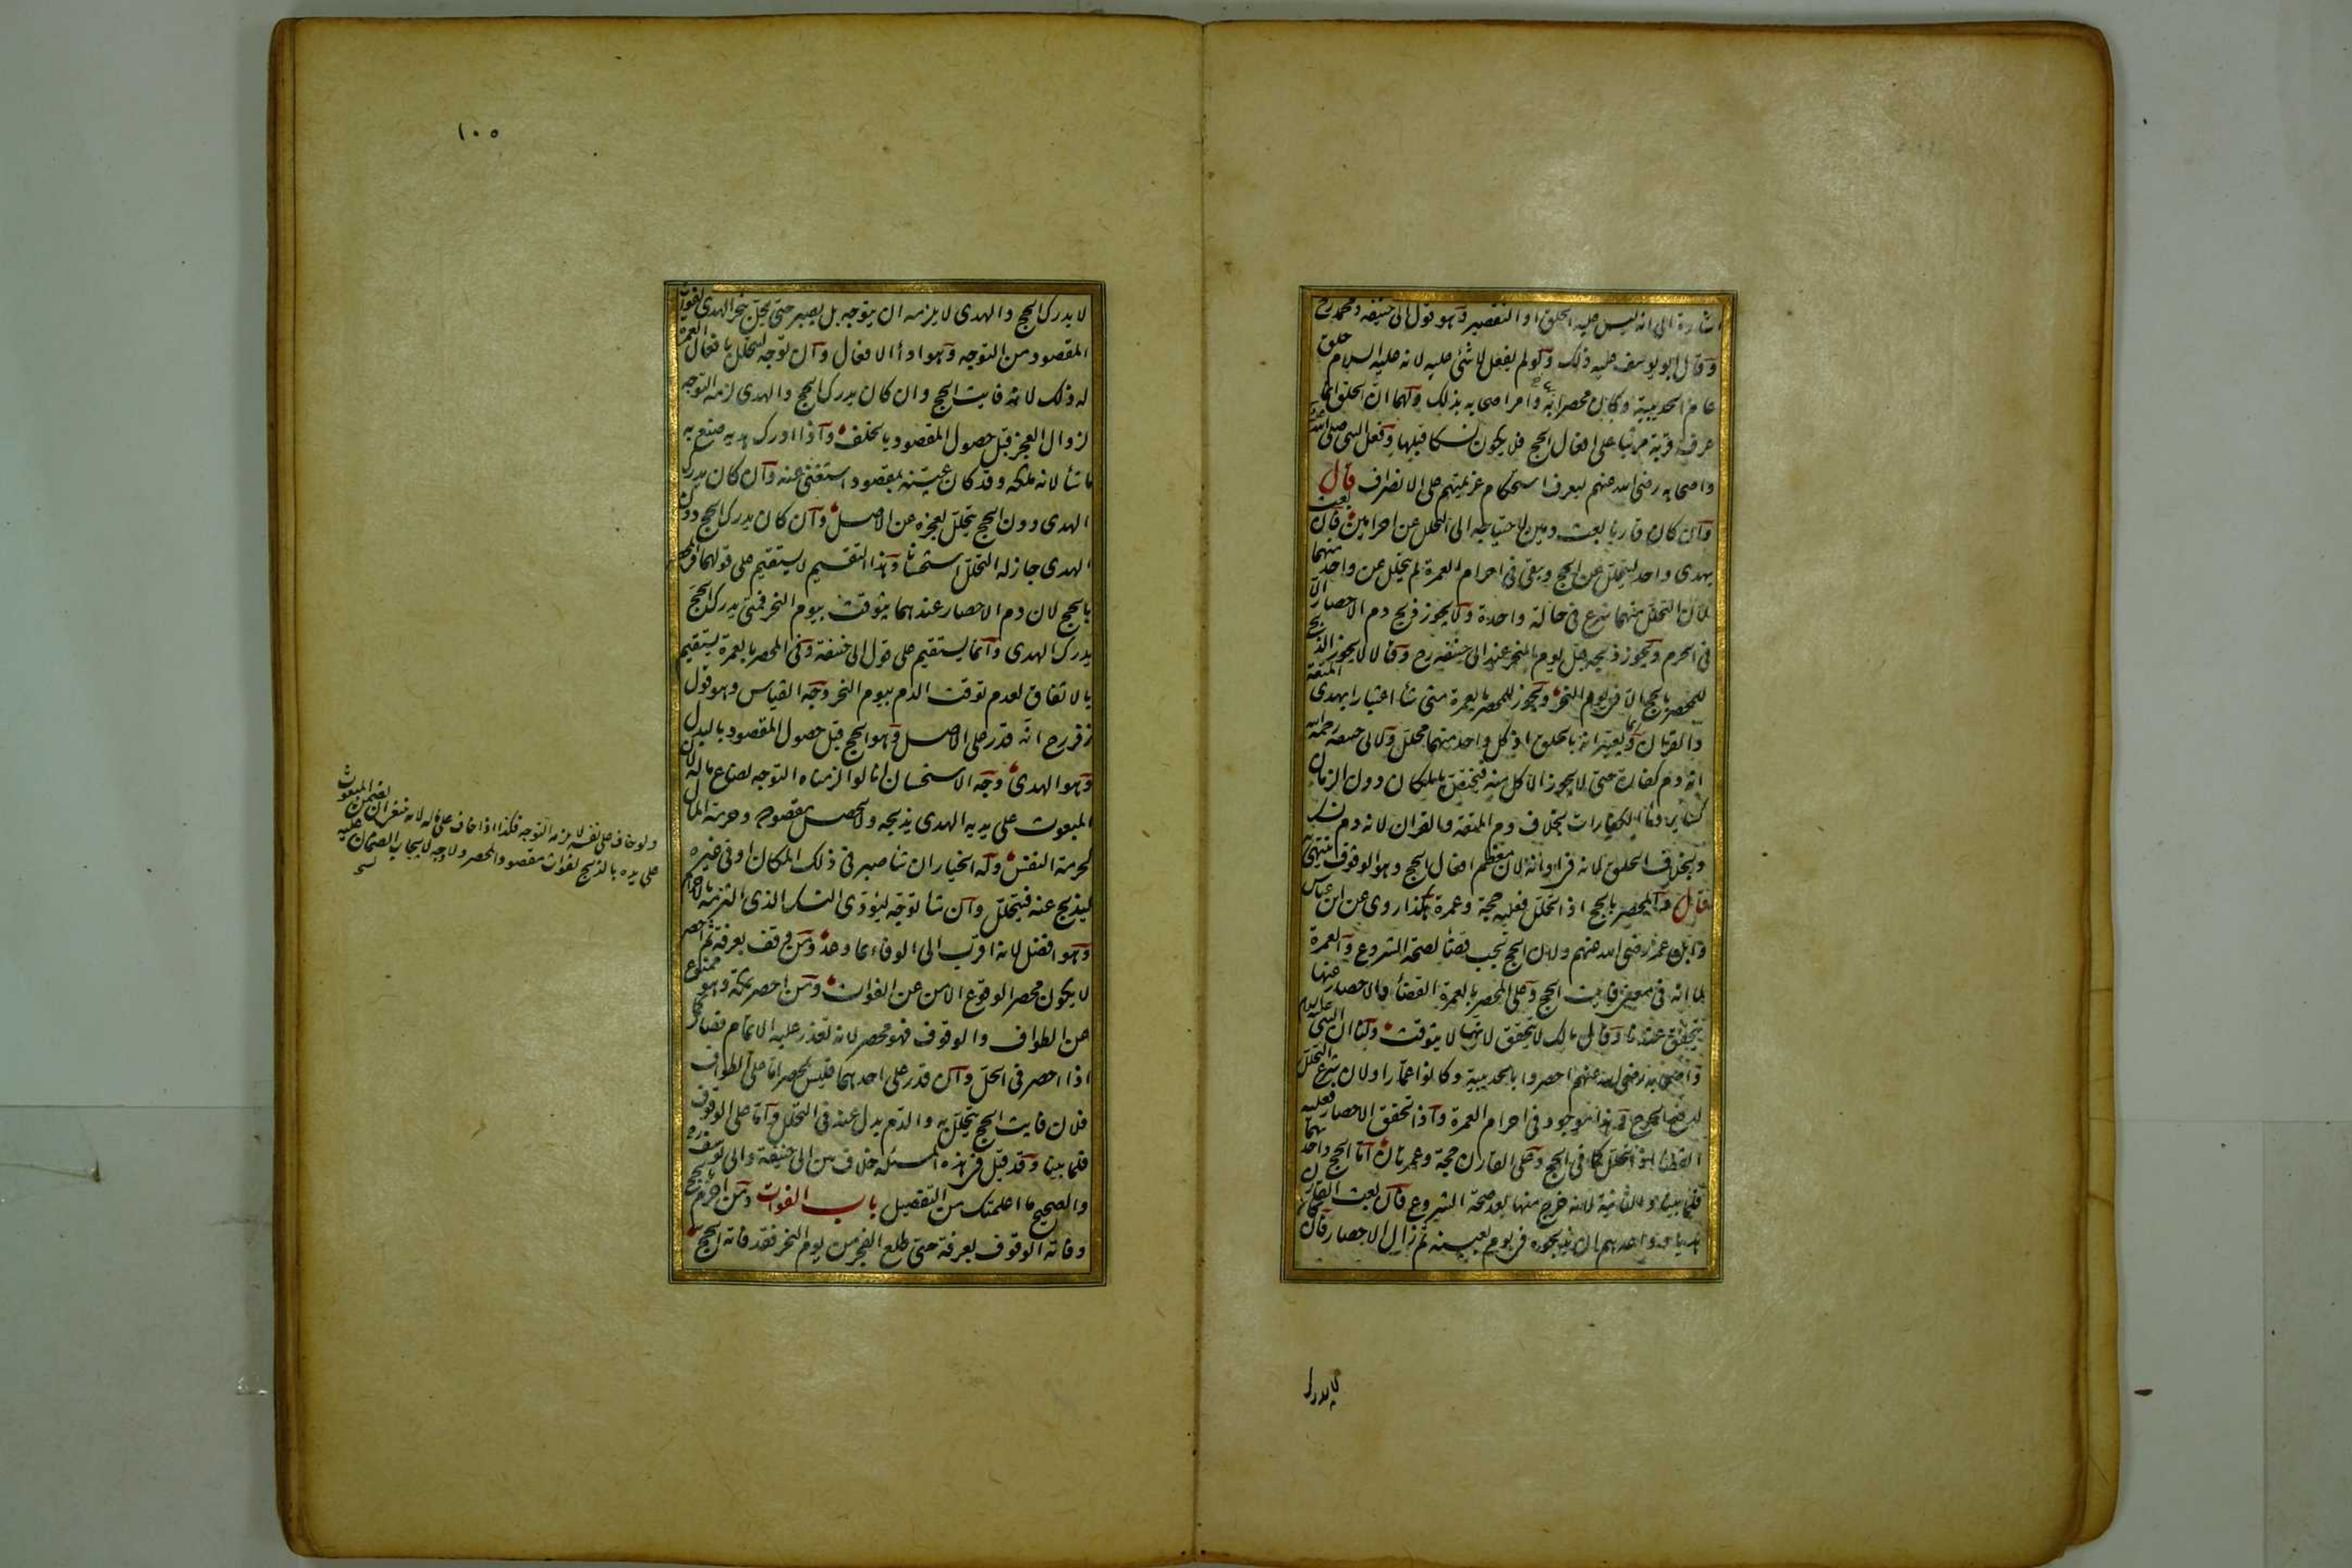 اشارة الى انه ليس عليه الحلق او التقصير وهو قول ابى حنيفه ومحمد رح
وقال ابو يوسف عليه ذلك ولو لم يفعل لا شئ عليه لانه عليه السلام حلق
عام الحديبية وكان محصرا به وامر اصحابه بذلك ولهما ان الحلق انما
عرف قربة مرتبا على افعال الحج فلا يكون نسكا قبلها وفعل النبى صلى الله
واصحابه رضى الله عنهم ليعرف استحكام عزيمتهم على الانصراف قال
وان كان قارنا بعث بدمين لاحتياجه الى التحلل عن احرامين فان بعث
بهدى واحد ليتحلل عن الحج ويبقى فى احرام العمرة لم يتحلل عن واحد منهما
لان التحلل منهما شرع فى حالة واحدة ولا يجوز ذبح دم الاحصار الا
فى الحرم ويجوز ذبحه قبل يوم النحر عند ابى حنيفه رح وقالا لا يجوز الذبح
للمحصر بالحج الا فى يوم النحر ويجوز للمحصر بالعمرة متى شأ اعتبارا بهدى المتعة
والقران وربما يعتبرانه بالحلق اذ كل واحد منهما محلل ولابى حنيفه رحمه الله
انه دم كفارة حتى لا يجوز الاكل منه فيختص بالمكان دون الزمان
كسائر دمأ الكفارات بخلاف دم المتعة والقران لانه دم نسك
وبخلاف الحلق لانه فى اوانه لان معظم افعال الحج وهو الوقوف ينتهى به
قال والمحصر بالحج اذا تحلل فعليه حجة وعمرة هكذا روى عن ابن عباس
وابن عمر رضى الله عنهم ولان الحج تجب قضأ لصحة الشروع والعمرة
لما انه فى معنى فايت الحج وعلى المحصر بالعمرة القضأ والاحصار عنها
يتحقق عندنا وقال مالك لا يتحقق لانها لا يتوقت ولنا ان النبى عليه السلام
واصحابه رضى الله عنهم احصروا بالحديبية وكانوا عمارا ولان شرع التحلل
لدفع الحرج وهذا موجود فى احرام العمرة واذا تحقق الاحصار فعليه
القضأ اذا تحلل كما فى الحج وعلى القارن حجة وعمرتان اما الحج واحديهما
فلما بينا والثانية لانه خرج منها بعد صحة الشروع فان بعث القارن
هديا وواعدهم ان يذبحوه فى يوم بعينه ثم زال الاحصار فان كان
لا يدرك
١٠٥
لا يدرك الحج والهدى لا يلزمه ان يتوجه بل يصبر حتى يحل بنحر الهدى لفوات
المقصود من التوجه وهو ادأ الافعال وان توجه ليتحلل بافعال العمرة
له ذلك لانه فايت الحج وان كان يدرك الحج والهدى لزمه التوجه
لزوال العجز قبل حصول المقصود بالخلف واذا ادرك هديه صنع به
ما شأ لانه ملكه وقد كان عينه لمقصود استغنى عنه وان كان يدرك
الهدى دون الحج يتحلل لعجزه عن الاصل وان كان يدرك الحج دون
الهدى جاز له التحلل استحسانا وهذا التقسيم لا يستقيم على قولهما فى المحصر
بالحج لان دم الاحصار عندهما يتوقت بيوم النحر فمتى يدرك الحج
يدرك الهدى وانما يستقيم على قول ابى حنيفة وفى المحصر بالعمرة يستقيم
بالاتفاق لعدم توقت الدم بيوم النحر وجه القياس وهو قول
زفر رح انه قدر على الاصل وهو الحج قبل حصول المقصود بالبدل
وهو الهدى وجه الاستحسان انا لو الزمناه التوجه لضاع ماله لان
المبعوث على يديه الهدى يذبحه ولا يحصل مقصوده وحرمة المال
كحرمة النفس وله الخيار ان شأ صبر فى ذلك المكان او فى غيره
ليذبح عنه فيتحلل وان شأ توجه ليؤدى النسك الذى التزمه بالاحرام
وهو افضل لانه اقرب الى الوفاء بما وعد ومن وقف بعرفة ثم احصر
لا يكون محصرا لوقوع الامن عن الفوات ومن احصر بمكة وهو ممنوع
عن الطواف والوقوف فهو محصر لانه تعذر عليه الاتمام فصار كما
اذا احصر فى الحل وان قدر على احدهما فليس بمحصر اما على الطواف
فلان فايت الحج يتحلل به والدم بدل عنه فى التحلل واما على الوقوف
فلما بينا وقد قيل فى هذه المسئلة خلاف بين ابى حنيفة وابى يوسف رح
والصحيح ما اعلمتك من التفصيل باب الفوات ومن احرم بالحج
وفاته الوقوف بعرفة حتى طلع الفجر من يوم النحر فقد فاته الحج
ولو خاف على نفسه لا يلزمه التوجه فكذا اذا خاف على ماله لانه
على يده بالذبح لفوات مقصود المحصر ولا وجه لايجاب الضمان عليه